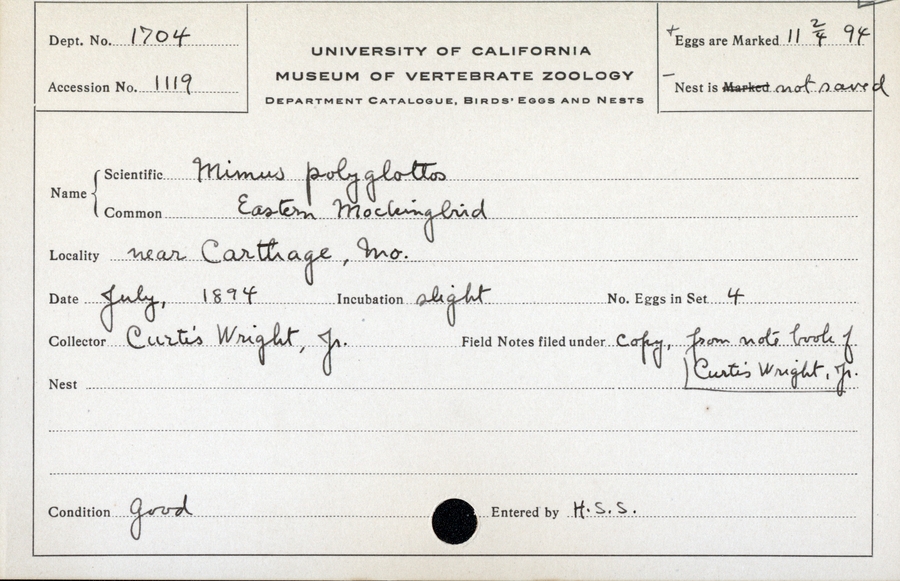 Dept. No. 1704
Accession No. 1119
UNIVERSITY OF CALIFORNIA
MUSEUM OF VERTEBRATE ZOOLOGY
DEPARTMENT CATALOGUE, BIRDS' EGGS AND NESTS
+ Eggs are Marked 11 2/4 94
— Nest is Marked not saved
Name
Scientific Mimus polyglottos
Common Eastern Mockingbird
Locality near Carthage, Mo.
Date July, 1894 Incubation slight No. Eggs in Set 4
Collector Curtis Wright, Jr. Field Notes filed under copy, from note book of
Curtis Wright, Jr.
Nest
Condition good Entered by H.S.S.